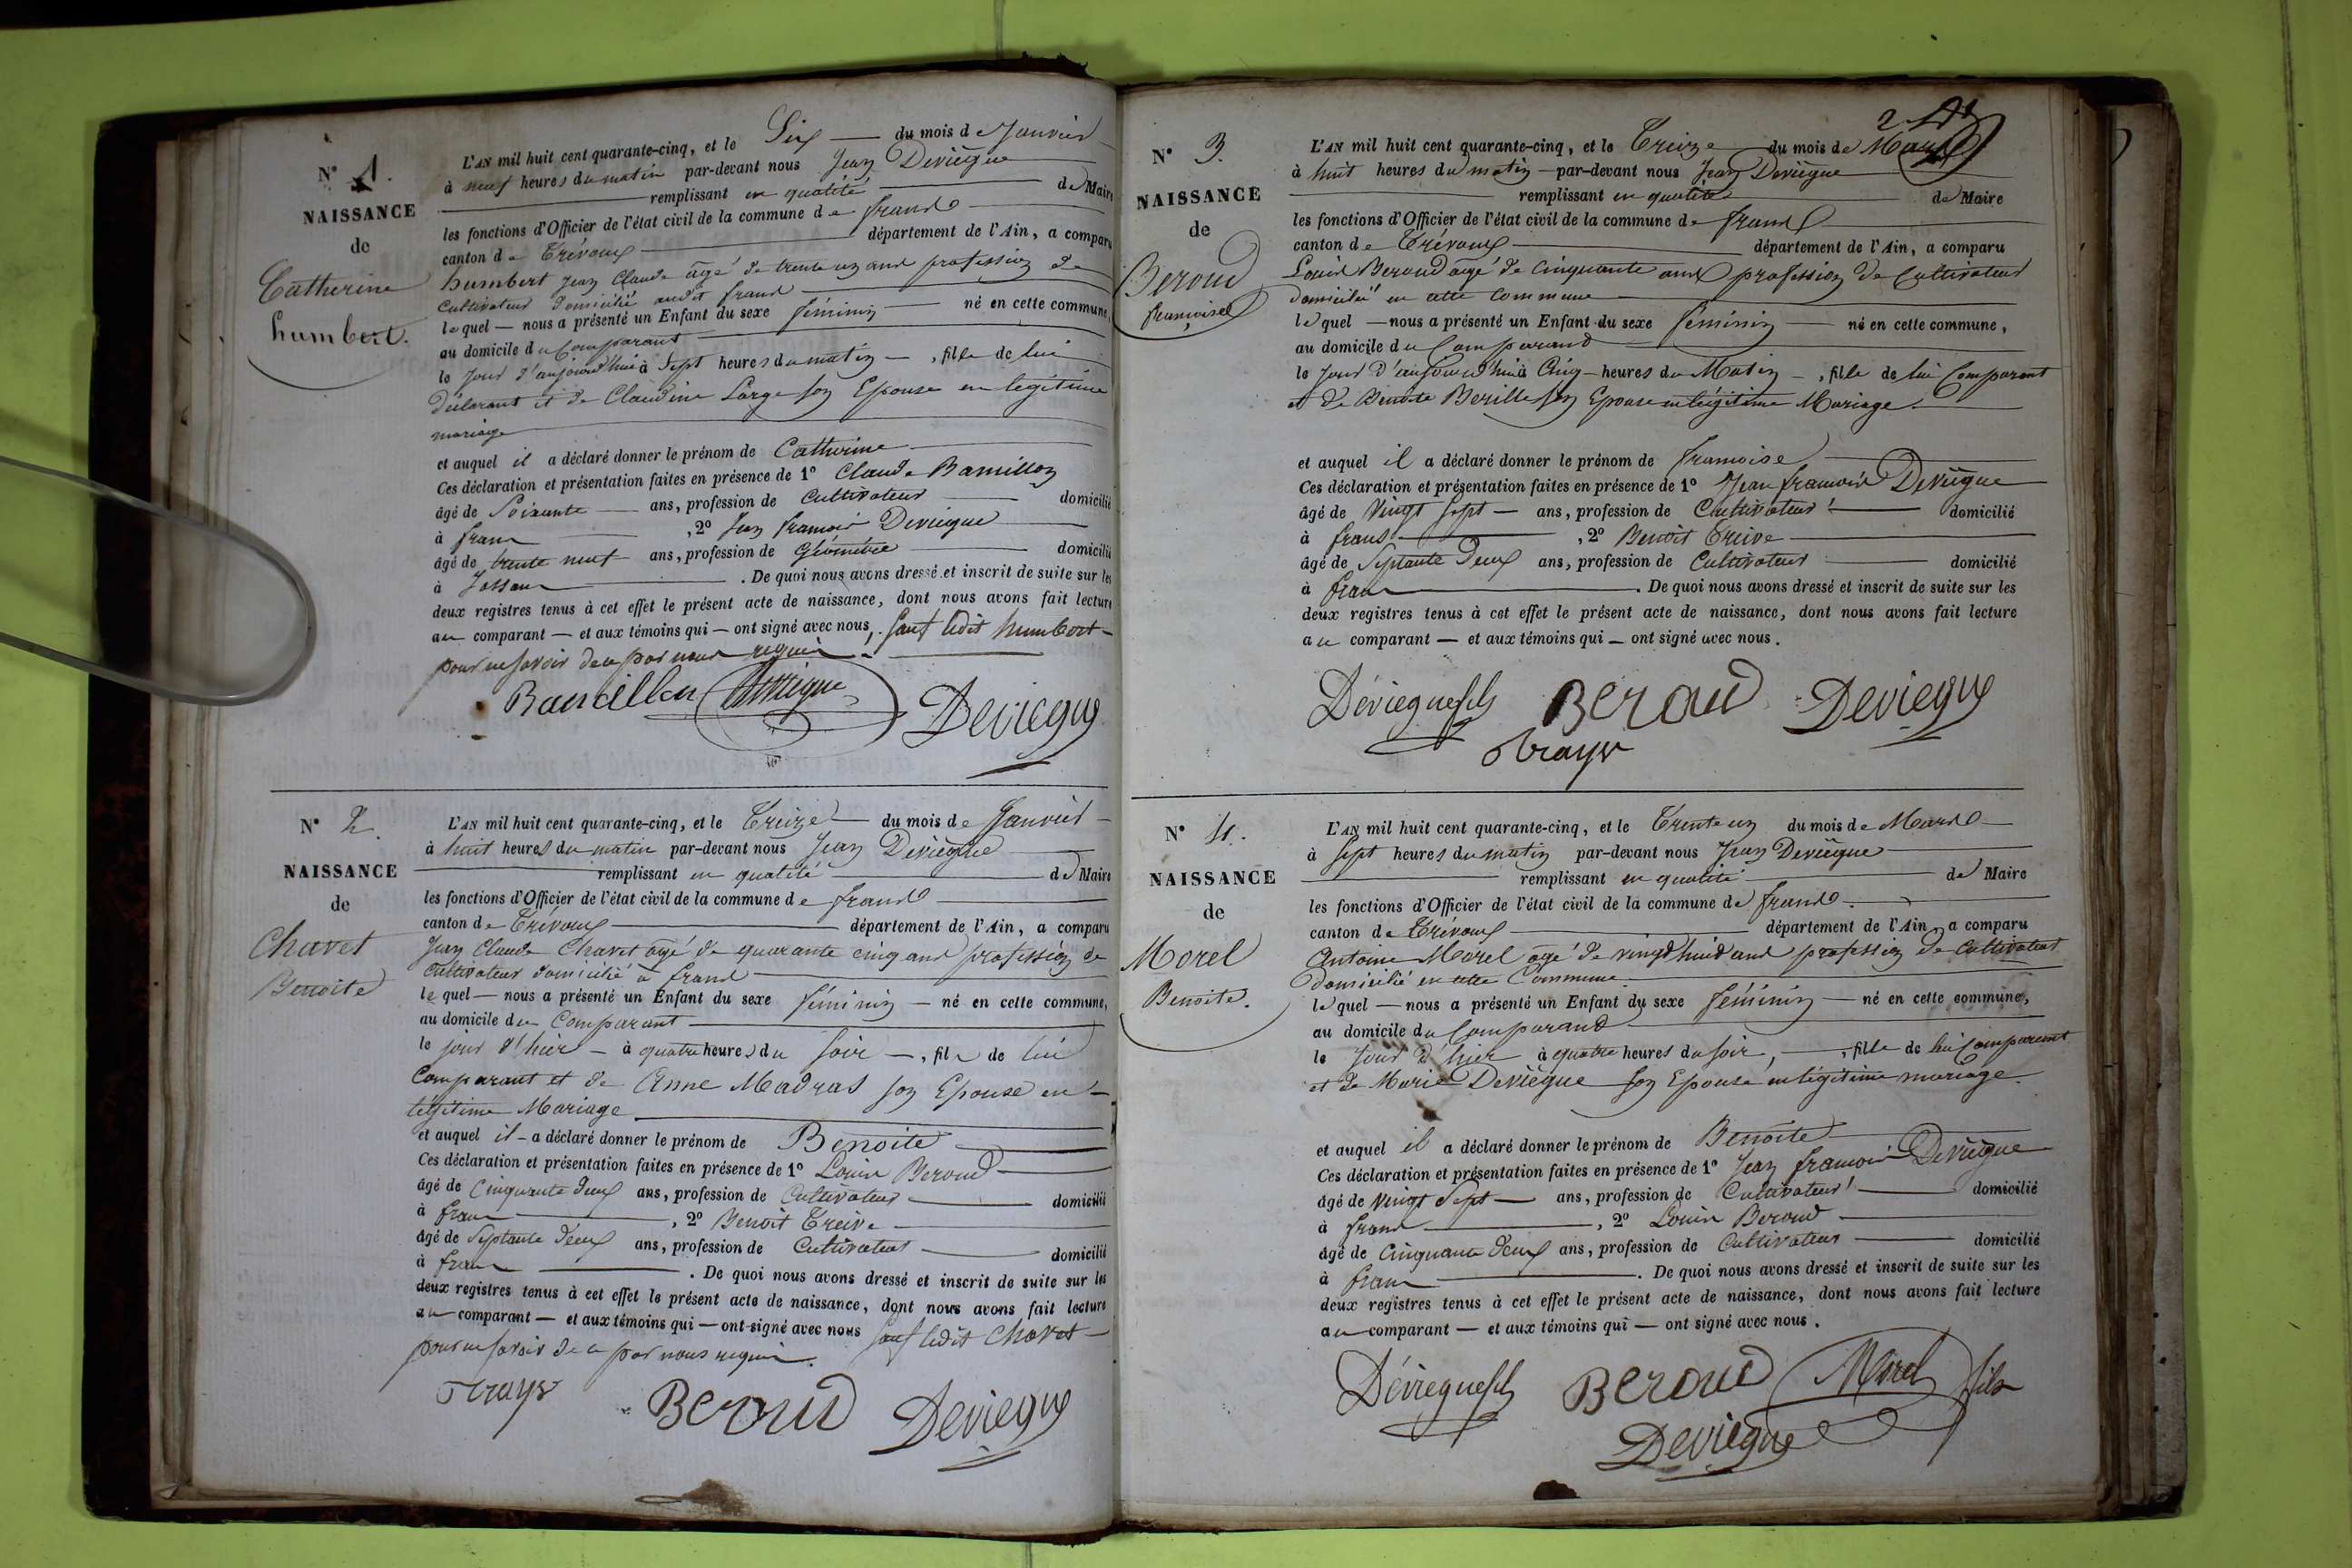 N° 1.
NAISSANCE
de
Catherine
humbert.
L'AN mil huit cent quarante-cinq, et le Six du mois de Janvier
à neuf heures du matin par-devant nous Jean Deviègue
remplissant en qualité de Maire
les fonctions d'Officier de l'état civil de la commune de frans
canton de Trévoux département de l'Ain, a comparu
humbert Jean Claude âgé de trente un ans profession de
Cultivateur domicilié audit frans
lequel — nous a présenté un Enfant du sexe féminin né en cette commune,
au domicile du Comparant
le Jour d'aujourd'hui à Sept heures du matin —, fille de lui
déclarant et de Claudine Large son Epouse en légitime
mariage
et auquel il a déclaré donner le prénom de Catherine
Ces déclaration et présentation faites en présence de 1° Claude Bamillon
âgé de Soixante ans, profession de Cultivateur domicilié
à frans , 2° Jean françois Deviegue
âgé de trente neuf ans, profession de Géomètre domicilié
à Jassans . De quoi nous avons dressé et inscrit de suite sur les
deux registres tenus à cet effet le présent acte de naissance, dont nous avons fait lecture
au comparant — et aux témoins qui — ont signé avec nous, sauf ledit humbert
pour ne savoir de ce par nous requis.
Deviegue
N° 2.
NAISSANCE
de
Chavet
Benoite
L'AN mil huit cent quarante-cinq, et le Treize du mois de Janvier
à huit heures du matin par-devant nous Jean Deviègue
remplissant en qualité de Maire
les fonctions d'Officier de l'état civil de la commune de frans
canton de Trévoux département de l'Ain, a comparu
Jean Claude Chavet âgé de quarante cinq ans profession de
Cultivateur domicilié à frans
lequel — nous a présenté un Enfant du sexe féminin — né en cette commune,
au domicile du Comparant
le jour d'hier — à quatre heures du soir —, fille de lui
Comparant et de Anne Madras son Epouse en
légitime Mariage
et auquel il — a déclaré donner le prénom de Benoite
Ces déclaration et présentation faites en présence de 1° Louis Beroud
âgé de Cinquante deux ans, profession de Cultivateur domicilié
à frans , 2° Benoit Treive
âgé de Septante deux ans, profession de Cultivateur domicilié
à frans . De quoi nous avons dressé et inscrit de suite sur les
deux registres tenus à cet effet le présent acte de naissance, dont nous avons fait lecture
au comparant — et aux témoins qui — ont signé avec nous sauf ledit Chavet
pour ne savoir de ce par nous requis.
Beroud Deviegue
N° 3.
NAISSANCE
de
Beroud
françoise
L'AN mil huit cent quarante-cinq, et le Treize du mois de Mars
à huit heures du matin — par-devant nous Jean Deviègue
remplissant en qualité de Maire
les fonctions d'Officier de l'état civil de la commune de frans
canton de Trévoux département de l'Ain, a comparu
Louis Beroud âgé de cinquante ans profession de Cultivateur
domicilié en cette commune
lequel — nous a présenté un Enfant du sexe féminin — né en cette commune,
au domicile du Comparand
le jour d'aujourd'hui à Cinq — heures du Matin —, fille de lui Comparant
et de Benoite son Epouse en légitime Mariage.
et auquel il a déclaré donner le prénom de françoise
Ces déclaration et présentation faites en présence de 1° Jean françois Deviègue
âgé de Vingt sept — ans, profession de Cultivateur domicilié
à frans , 2° Benoit Treive
âgé de Septante Deux ans, profession de Cultivateur domicilié
à frans . De quoi nous avons dressé et inscrit de suite sur les
deux registres tenus à cet effet le présent acte de naissance, dont nous avons fait lecture
au comparant — et aux témoins qui — ont signé avec nous.
Dévieguefils Beroud Deviegue
N° 4.
NAISSANCE
de
Morel
Benoite.
L'AN mil huit cent quarante-cinq, et le Trente un du mois de Mars
à Sept heures du matin par-devant nous Jean Deviègue
remplissant en qualité de Maire
les fonctions d'Officier de l'état civil de la commune de frans.
canton de Trévoux département de l'Ain, a comparu
Antoine Morel âgé de vingt huid ans profession de Cultivateur
Domicilié en cette Commune.
lequel — nous a présenté un Enfant du sexe féminin — né en cette commune,
au domicile du Comparand
le Jour d'hier à quatre heures du soir, —, fille de lui Comparant
et de Marie Deviegue son Epouse en légitime mariage.
et auquel il a déclaré donner le prénom de Benoite
Ces déclaration et présentation faites en présence de 1° Jean françois Deviègue
âgé de Vingt Sept — ans, profession de Cultivateur domicilié
à frans , 2° Louis Beroud
âgé de Cinquante deux ans, profession de Cultivateur domicilié
à frans . De quoi nous avons dressé et inscrit de suite sur les
deux registres tenus à cet effet le présent acte de naissance, dont nous avons fait lecture
au comparant — et aux témoins qui — ont signé avec nous.
Dévieguefils Beroud Morel fils
Deviegue